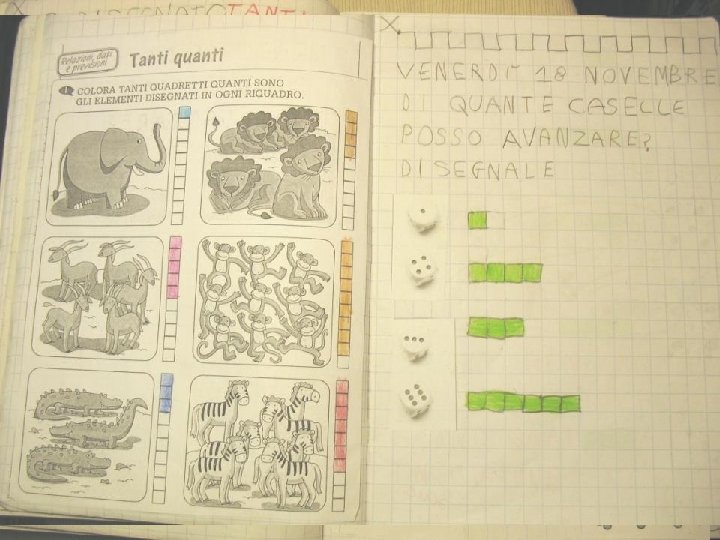 DISEGNATO TANT
Relazioni, dati
e previsioni
Tanti quanti
1 COLORA TANTI QUADRETTI QUANTI SONO
GLI ELEMENTI DISEGNATI IN OGNI RIQUADRO.
X
VENERDI' 18 NOVEMBRE
DI QUANTE CASELLE
POSSO AVANZARE?
DISEGNALE